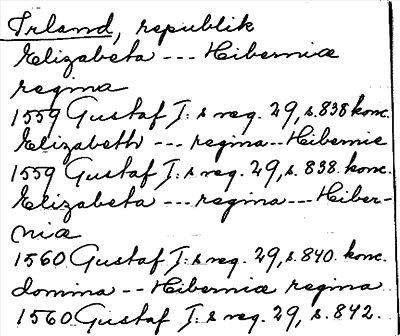 Irland, republik
Elizabeta --- Hiberniæ
regina
1559 Gustaf I:s reg. 29, s. 838 konc.
Elizabeth --- regina -- Hibernie
1559 Gustaf I:s reg. 29, s. 838. konc.
Elizabeta --- regina --- Hiber-
niæ
1560 Gustaf I:s reg. 29, s. 840. konc.
domina -- Hiberniæ regina
1560 Gustaf I:s reg. 29, s. 842.